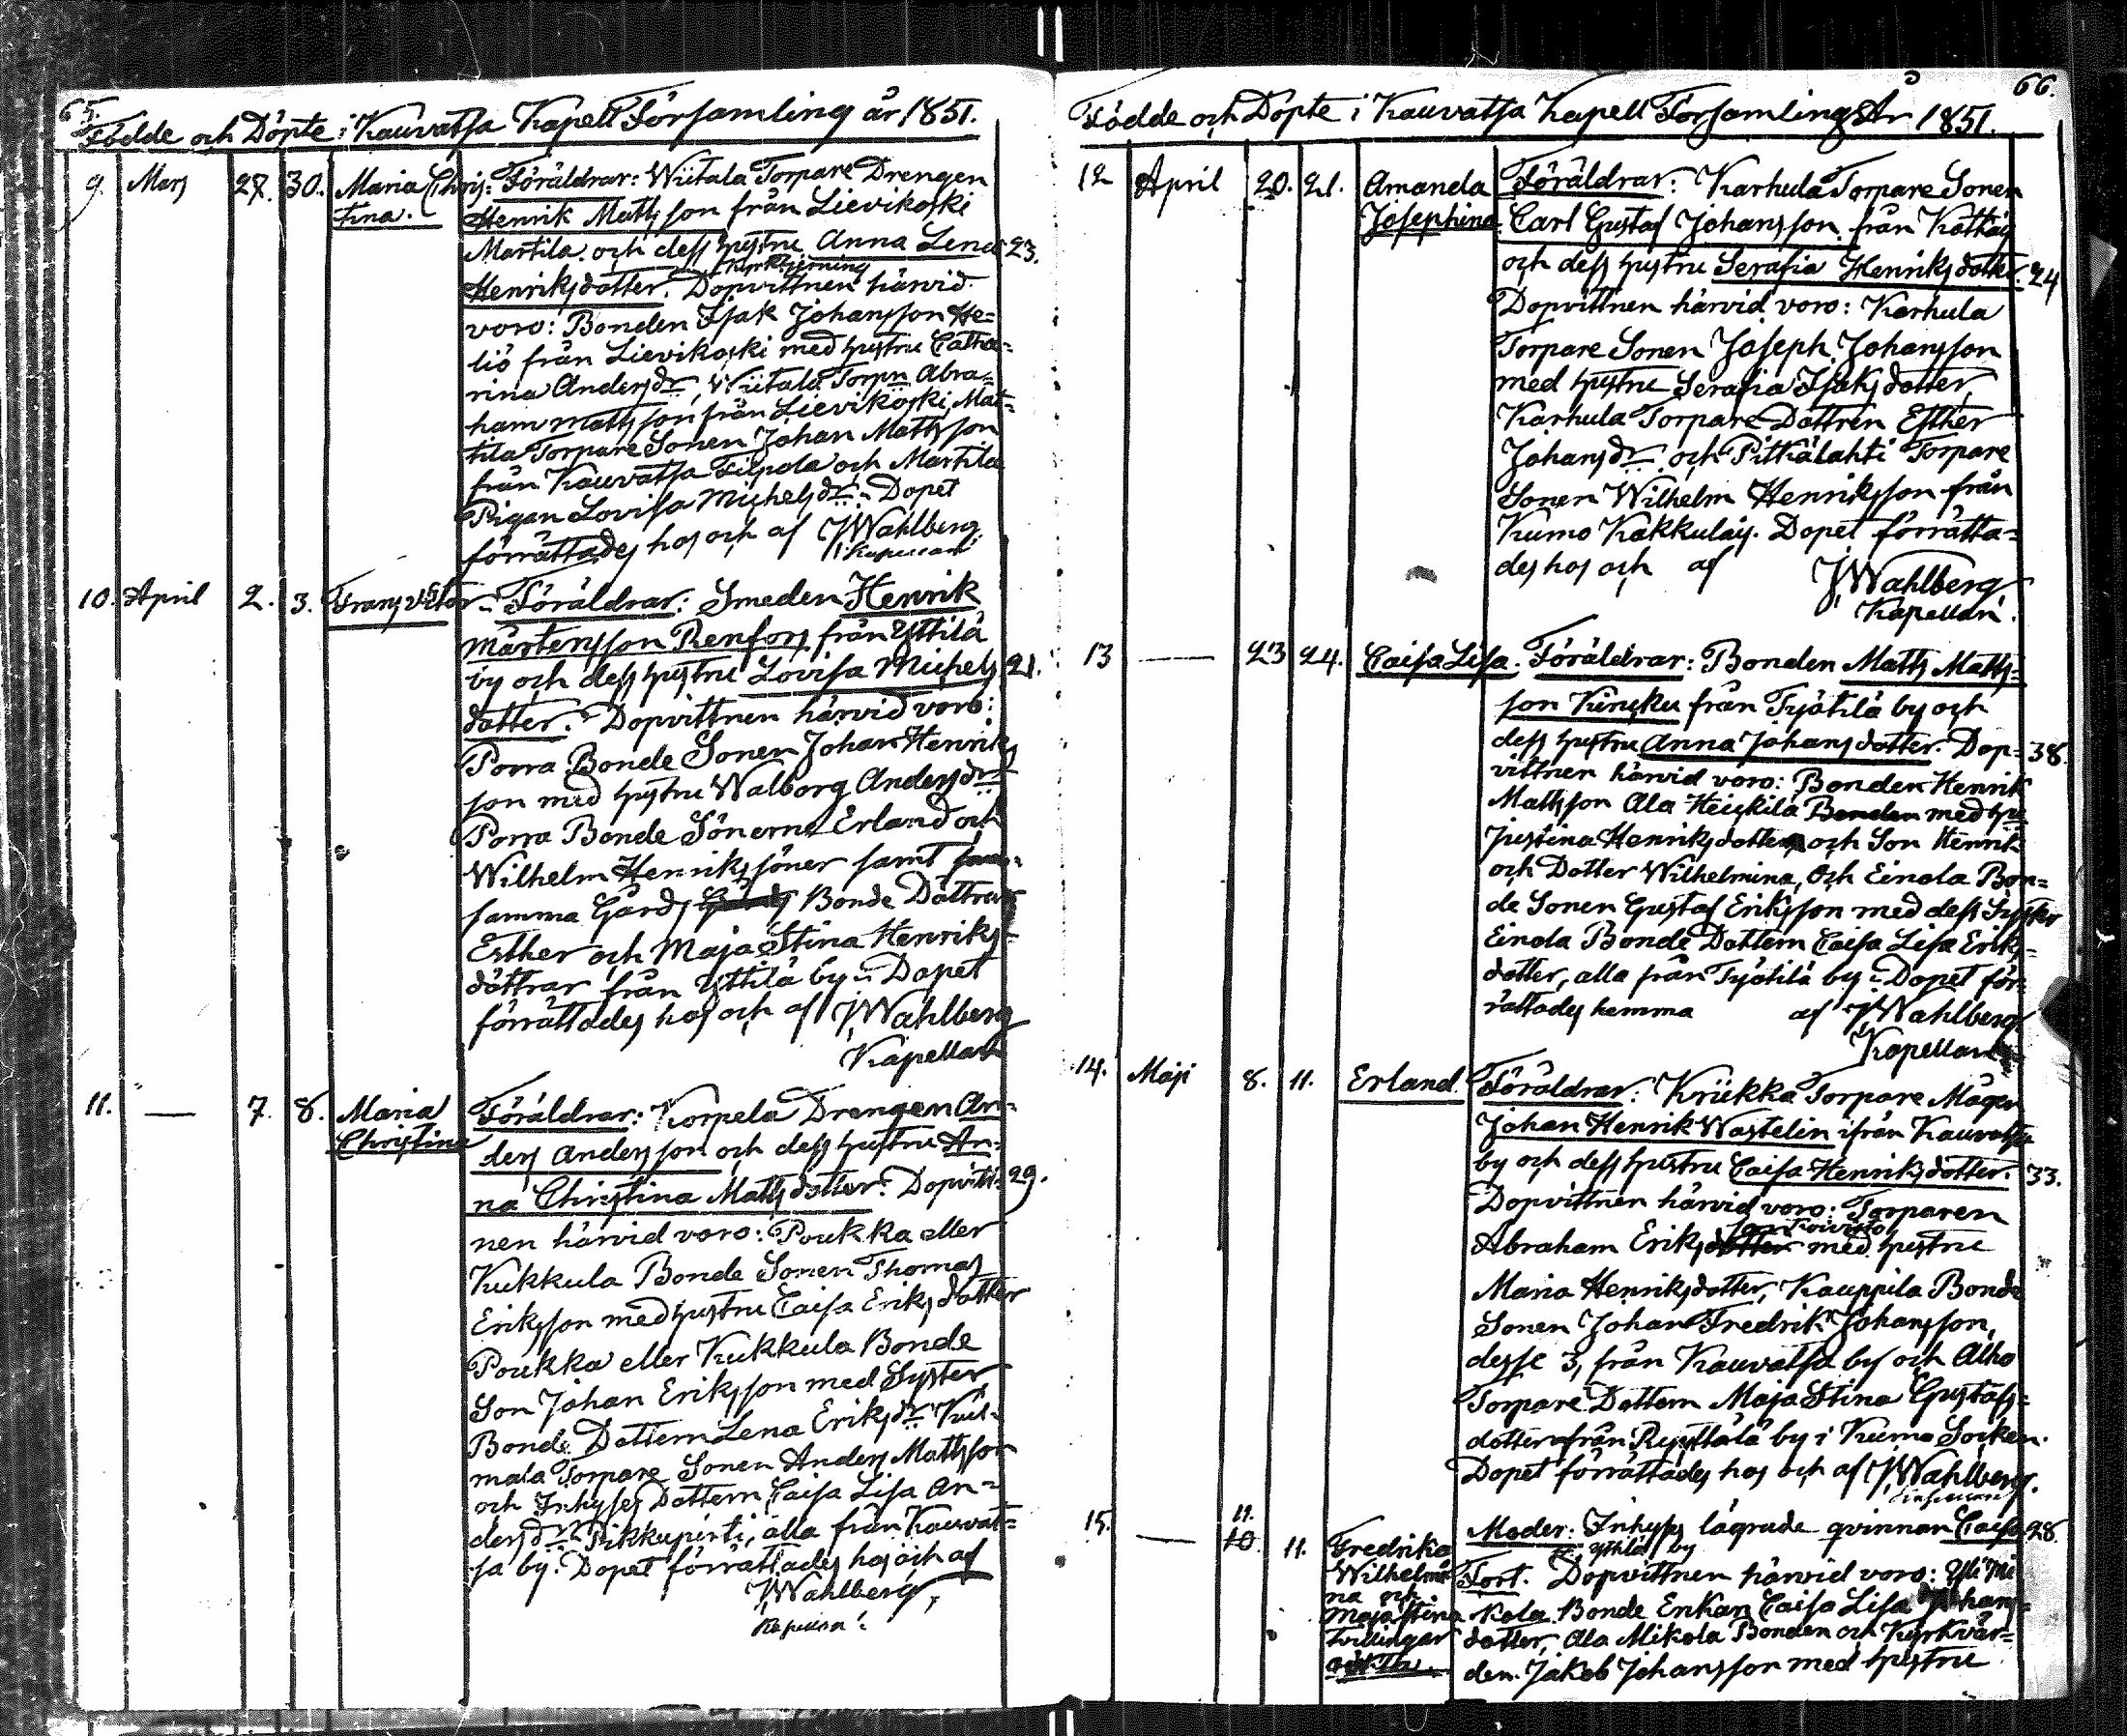 65.
Födde och Döpte i Kauvatsa Kapell Församling år 1851.
9. Mars 27. 30. Maria Chris: Föräldrar: Wiitala Torpare Drengen
tina. Henrik Mattsson från Lievikoski
Martila och dess hustru Anna Lena 23.
Kyrktjening
Henriksdotter. Dopvittnen härvid
voro: Bonden Isak Johansson He=
liö från Lievikoski med hustru Catha=
rina Andersdr, Wiitala Torpn Abra=
ham Mattsson från Lievikoski, Mat=
tila Torpare Sonen Johan Mattsson
från Kauvatsa Filpola och Martila
Pigan Lovisa Michelsdr. Dopet
förrättades hos och af JWahlberg
Kapellan
10. April 2. 3. Frans Victor. Föräldrar: Smeden Henrik
Mårtensson Renfors från Yttilä
by och dess hustru Lovisa Michels 21.
dotter. Dopvittnen härvid voro:
Porra Bonde Sonen Johan Henriks
son med hustru Walborg Andersdr
Porra Bonde Sönerne Erland och
Wilhelm Henrikssöner samt
samma Gårds Bonde Döttrar
Esther och Maja Stina Henriks-
döttrar från Yttilä by. Dopet
förrättades hos och af JWahlberg
Kapellan
11. — 7. 8. Maria Föräldrar: Korpela Drengen An=
Christina ders Andersson och dess hustru An-
na Christina Mattsdotter. Dopvitt- 29.
nen härvid voro: Poukka eller
Kukkula Bonde Sonen Thomas
Eriksson med hustru Caisa Eriksdotter
Poukka eller Kukkula Bonde
Son Johan Eriksson med Syster
Bonde Dottern Lena Eriksdr Kul-
mala Torpare Sonen Anders Mattsson
och Inhyses Dottern Caisa Lisa An=
dersdr Pikkupirti, alla från Kauvat=
sa by. Dopet förrättades hos och af
JWahlberg,
Kapellan.
66.
Födde och Döpte i Kauvatsa Kapell Församling År 1851.
12 April 20. 21. Amanda Föräldrar: Karhula Torpare Sonen
Josephina Carl Gustaf Johansson från
och dess hustru Serafia Henriksdotter. 24
Dopvittnen härvid voro: Karhula
Torpare Sonen Joseph Johansson
med hustru Serafia Isaksdotter,
Karhula Torpare Dottren Esther
Johansdr och Pitkälahti Torpare
Sonen Wilhelm Henriksson från
Kumo Kakkulais. Dopet förrätta=
des hos och af JWahlberg,
Kapellan.
13 — 23 24. Caisa Lisa. Föräldrar: Bonden Matts Matts=
son Kinsku från Työtilä by och
dess hustru Anna Johansdotter. Dop= 38.
vittnen härvid voro: Bonden Henrik
Mattsson Ala Heickilä Bonden med hu
Justina Henriksdotter och Son Henrik
och Dotter Wilhelmina, och Einola Bon=
de Sonen Gustaf Eriksson med dess Syster
Einola Bonde Dottern Caisa Lisa Eriks=
dotter, alla från Työtilä by. Dopet för=
rättades hemma af JWahlberg
Kapellan
14. Maji 8. 11. Erland. Föräldrar: Kriikka Torpare Mågen
Johan Henrik Wastelin ifrån Kauvatsa
by och dess hustru Caisa Henriksdotter. 33.
Dopvittnen härvid voro: Torparen
son Koivisto
Abraham Eriksdotter med hustru
Maria Henriksdotter, Kauppila Bonde
Sonen Johan Fredrik Johansson,
desse 3, från Kauvatsa by och Alho
Torpare Dottern Maja Stina Gustafs=
dotter från Ryyttälä by i Kumo Socken.
Dopet förrättades hos och af JWahlberg.
Kapellan
15. — 11. 10 11. Fredrika Moder: Inhyses lägrade qvinnan Caisa 28.
Yttilä by
Wilhelmi Tort. Dopvittnen härvid voro: Yli Mi
na och
Maja Stina kola Bonde Enkan Caisa Lisa Johans=
Tvillingar dotter, Ala Mikola Bonden och Kyrkvär=
oäkta. den Jakob Johansson med hustru